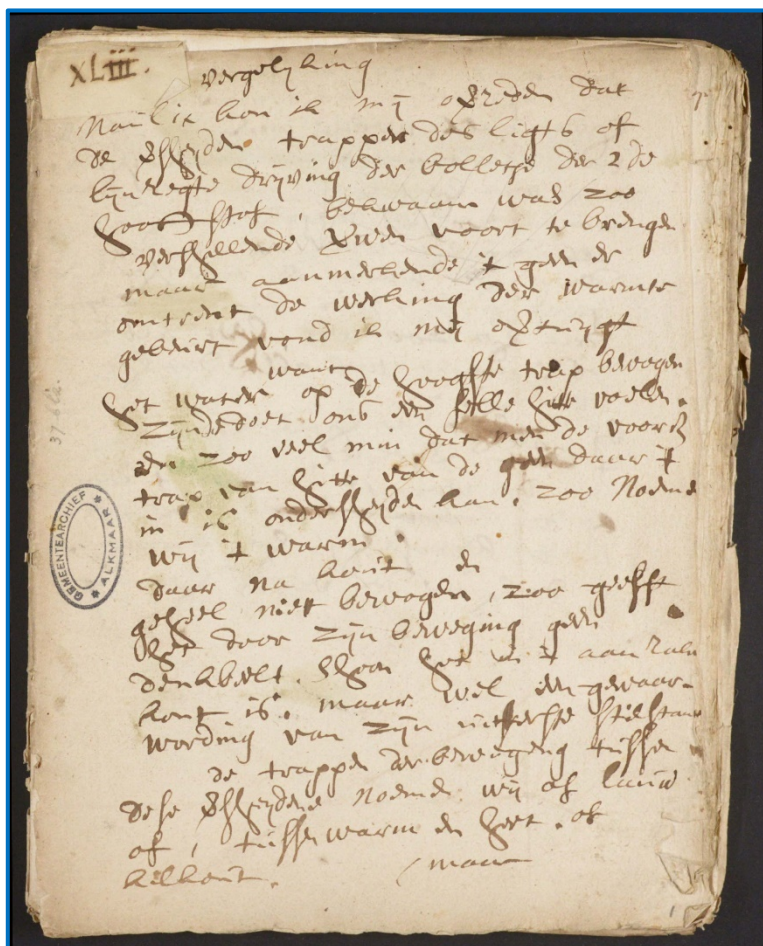 XLiii.
vergelyking
Naulix kon ik mij opreden dat
de trappen des ligts of
lijnregte drijving der bolletjes der 2 de
hooftstof, bekwaam was zoo
verschillende voort te brengen
maar aanmerkende 't geen er
omtrent de werking der warmte
gebeurt vond ik mij
want
het water op de hoogste trap bewogen
zijnde doet ons een felle hitte voelen.
en zoo veel min dat men de voorn
trap van hitte van de geen daar 't
in is ondersheyden kan, zoo noeme
wij 't warm.
daar na kout en
geheel niet bewogen, zoo geefft
het door zijn beweging geen
denkbeelt. schoon het in 't aanraken
kout is, maar wel een gewaar-
wording van zijn uitterste stilstant
de trappen der beweging tussen
dese noemen wij of lauw
of, tusse warm en heet, of
kilkout.
maar
37-662.
GEMEENTEARCHIEF
ALKMAAR